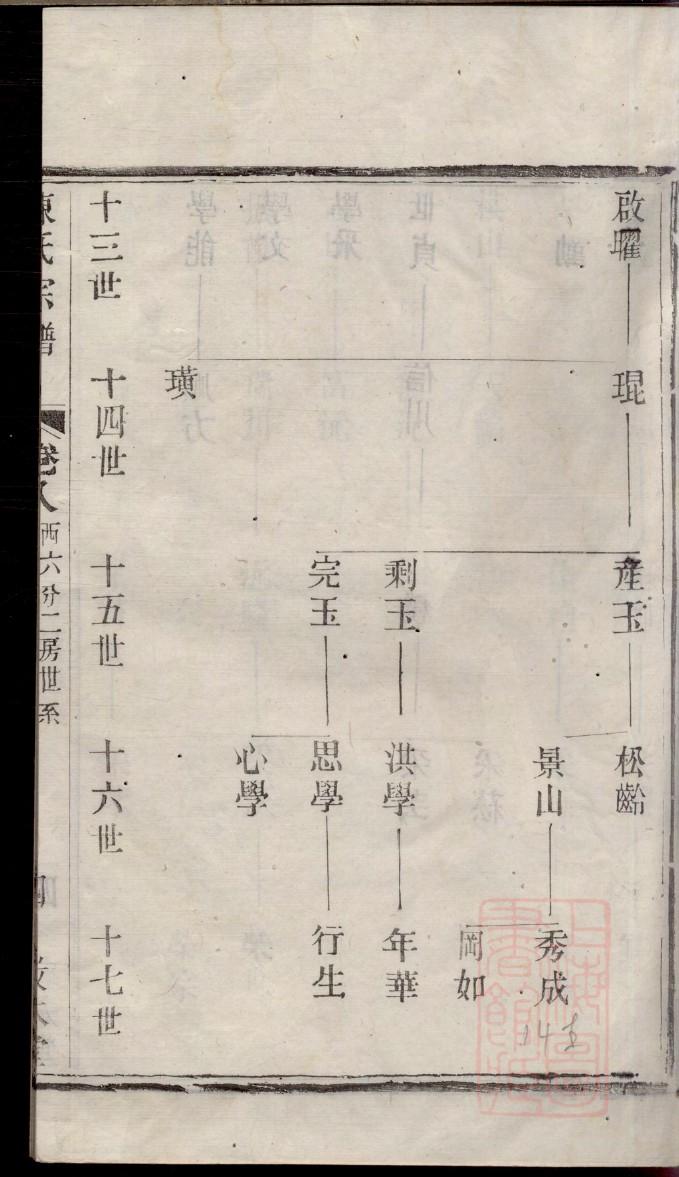 啟曜
琨
產玉
松齡
景山
秀成
岡如
剩玉
洪學
年華
完玉
思學
行生
心學
璜
十三世
十四世
十五世
十六世
十七世
陳氏宗譜
卷八
西六分二房世系
四
14